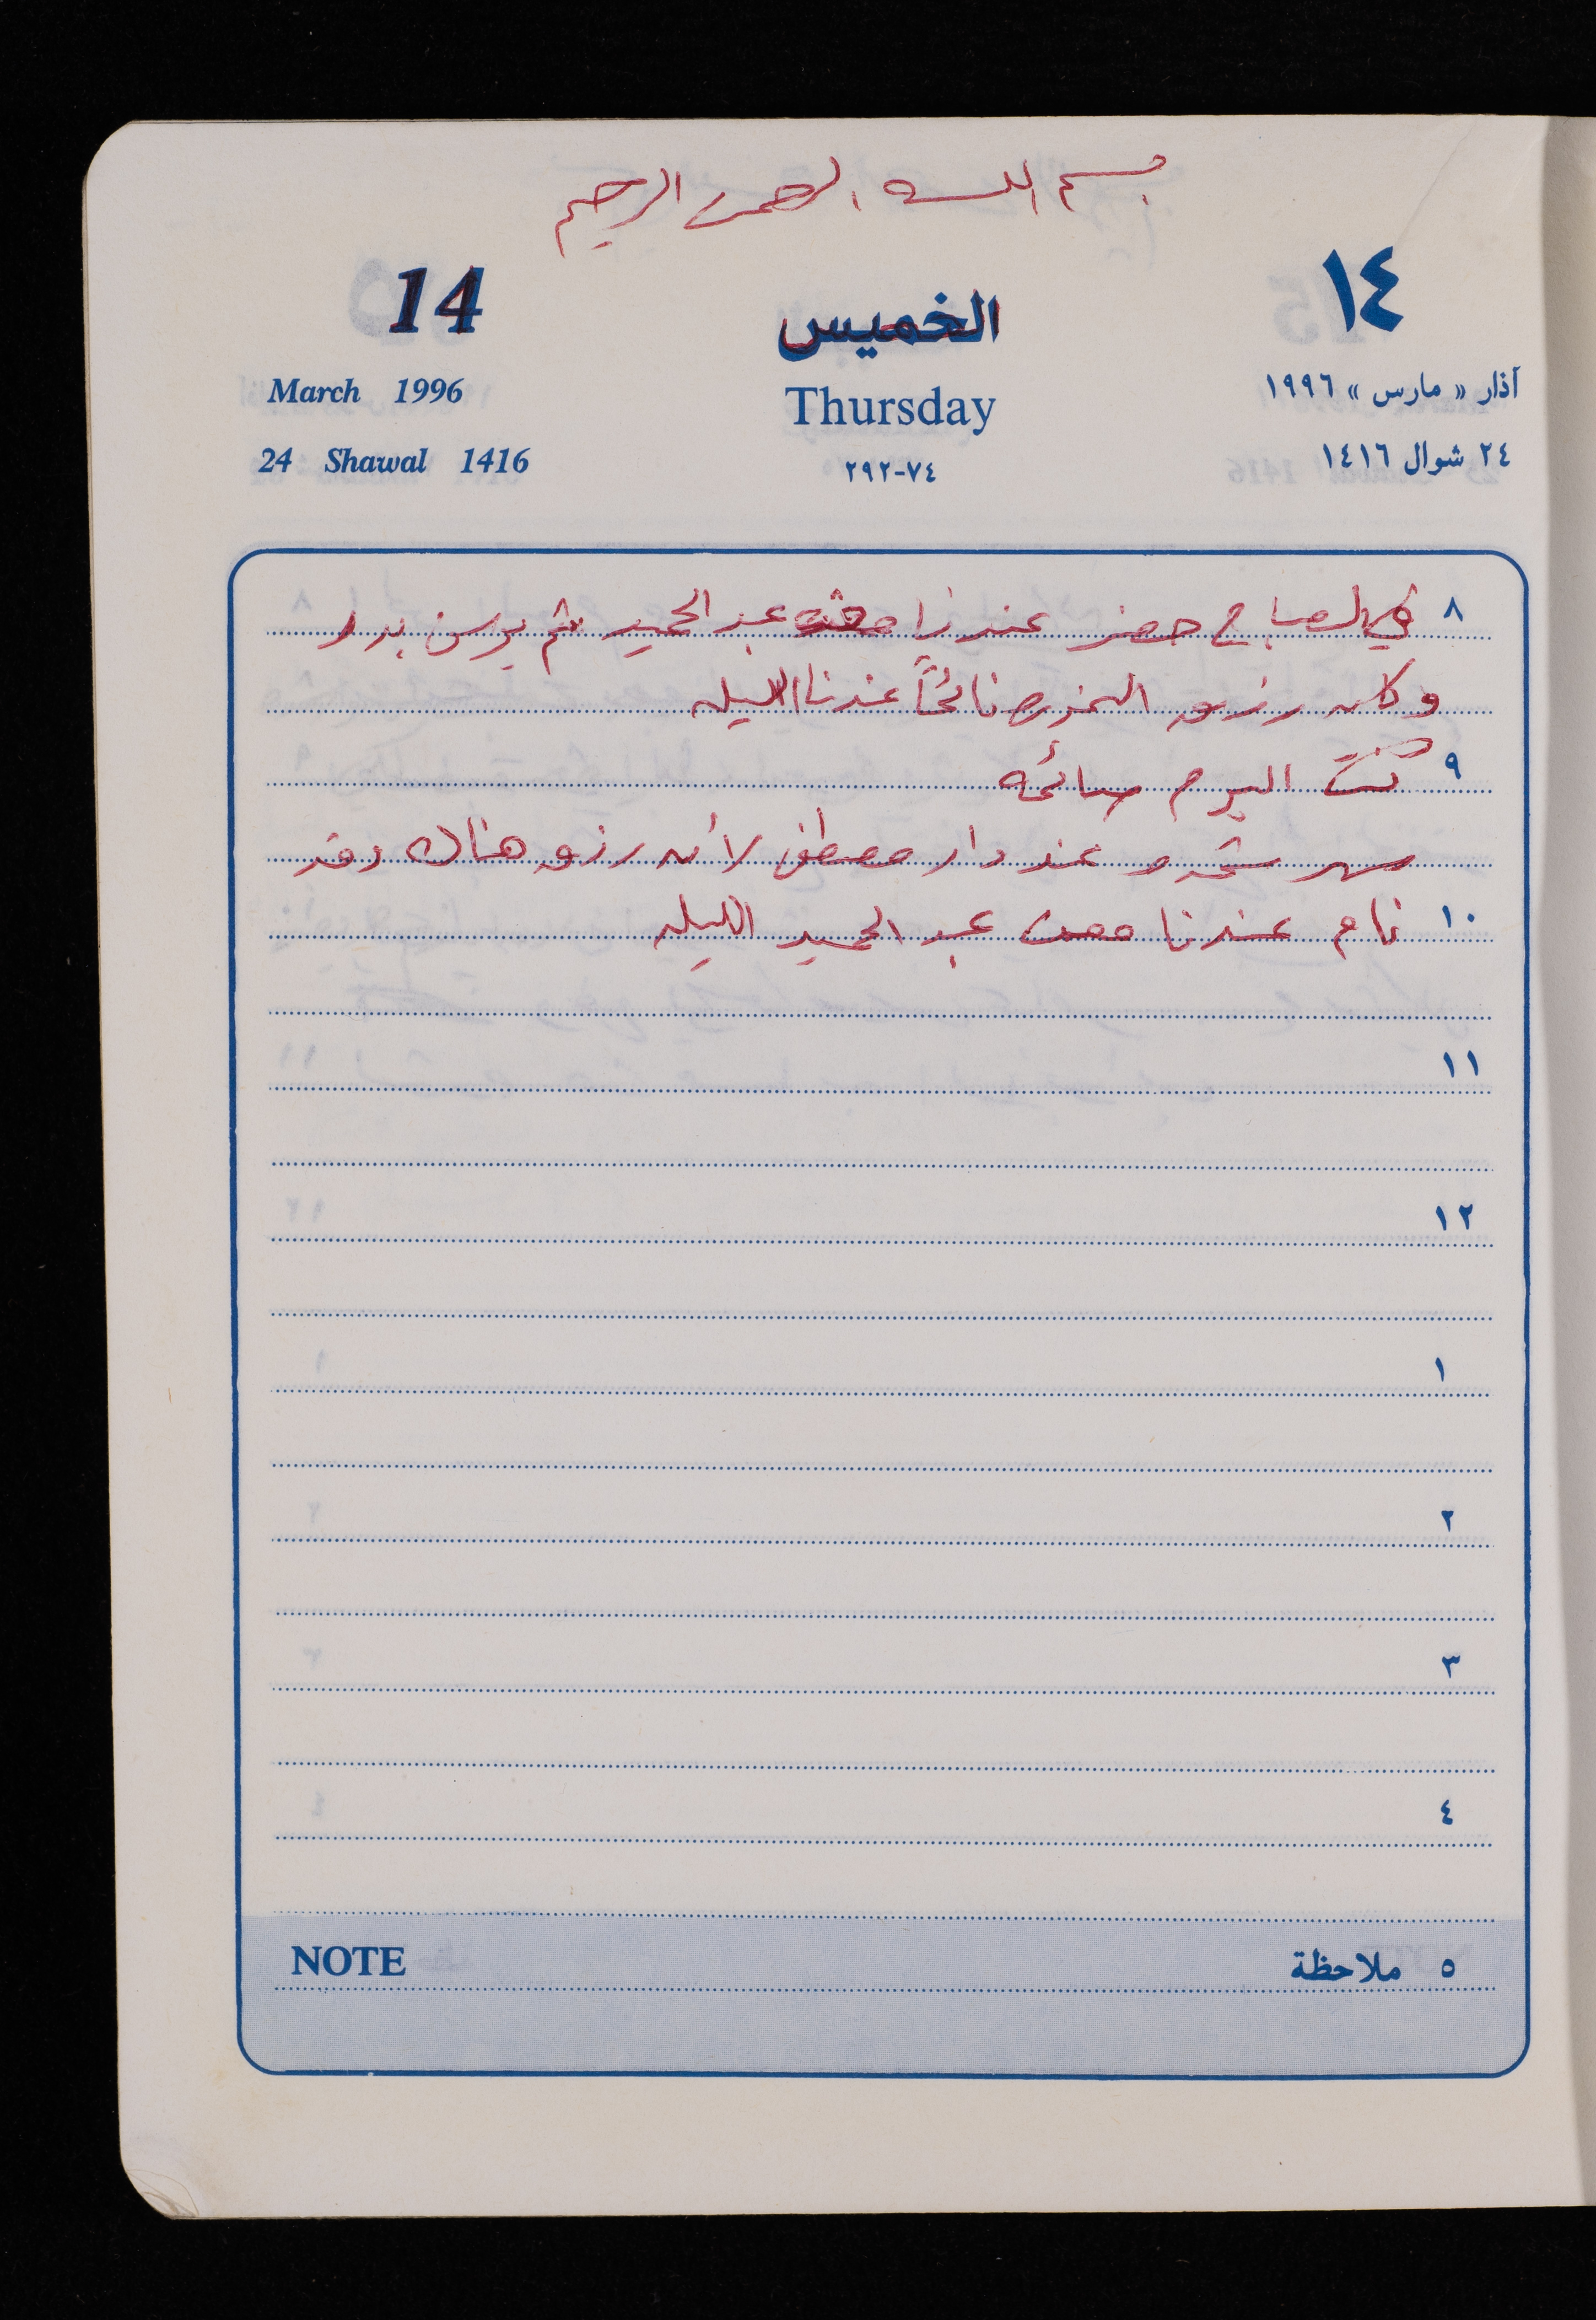 بسم الله الرحمن الرحيم
14 الخميس ١٤
March 1996 Thursday آذار « مارس » ١٩٩٦
24 Shawal 1416 ٢٩٢-٧٤ ٢٤ شوال ١٤١٦
٨ في الصباح حضر عندنا معن عبد الحميد ثم يوسف بدر
وكان رزق نائماً عندنا الليله
٩ كنت اليوم صائمه
سهر عند دار مصطفى لأن رزق هناك وقد
١٠ نام عندنا معن عبد الحميد الليله
١١
١٢
١
٢
٣
٤
NOTE ٥ ملاحظة